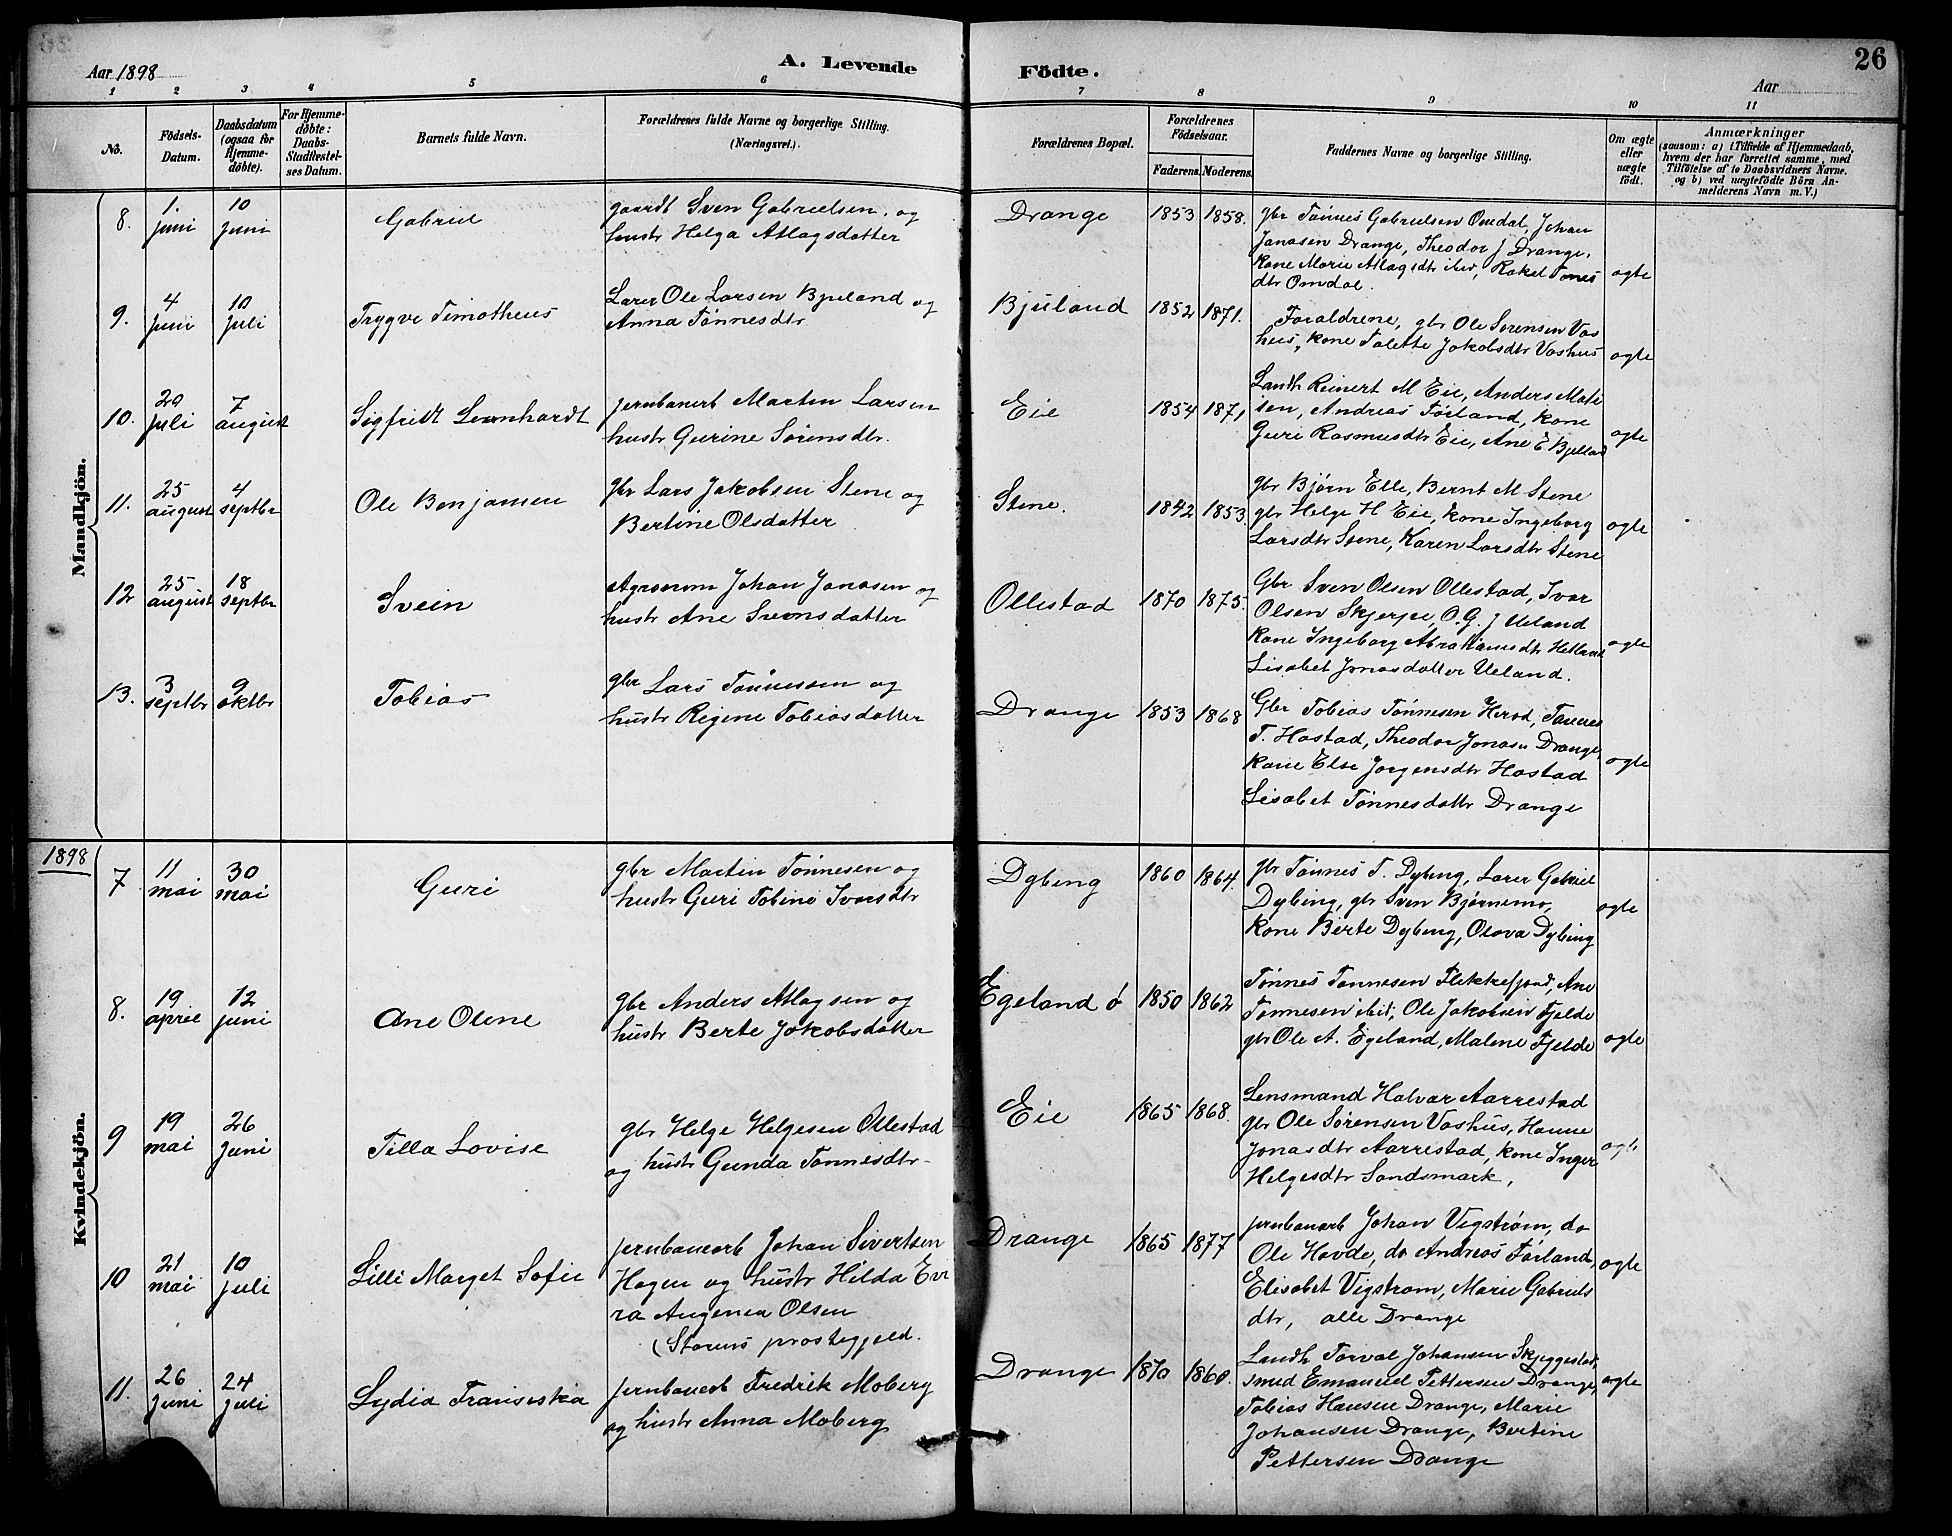 Aar 1898
A. Levende
Födte.
26
Aar
1 2 3 4 5 6 7 8 9 10 11
No.
Födsels-
Datum.
Daabsdatum
(ogsaa for
Hjemme-
döbte).
For Hjemme-
döbte:
Daabs-
Stadfæstel-
ses Datum.
Barnets fulde Navn.
Forældrenes fulde Navne og borgerlige Stilling.
(Næringsvei.)
Forældrenes Bopæl.
Forældrenes
Födselsaar.
Faderens.
Moderens.
Faddernes Navne og borgerlige Stilling.
Om ægte
eller
uægte
födt.
Anmærkninger
(saasom: a) i Tilfælde af Hjemmedaab,
hvem der har forrettet samme, med
Tilföielse af to Daabsvidners Navne.
og b) ved uægtefödte Börn An-
melderens Navn m.V.)
Mandkjön.
8.
1.
juni
10
juni
Gabriel
gaardb Sven Gabrielsen, og
hustr Helga Atlagsdatter
Drange
1853
1858.
gbr Tønnes Gabrielsen Omdal, Johan
Jonasen Drange, Theodor J Drange,
kone Marie Atlagsdtr ibid, Rakel Tønnes
dtr Omdal.
ægte
9.
4
juni
10
juli
Trygve Timotheus
Lærer Ole Larsen Bjuland og
Anna Tønnesdtr
Bjuland
1852
1871.
Forældrene, gbr Ole Sørensen Vas
hus, kone Talette Jakobsdtr Vashus
ægte
10.
20
juli
7
august
Sigfridt Leonhardt
jernbanearb Martin Larsen
hustr Gurine Sørensdtr.
Eie
1854
1871
Landh Reinert M Eie, Anders Mate
sen, Andreas Førland, kone
Guri Rasmusdtr Eie, Ane E Bjelland
ægte
11.
25
august
4
septbr
Ole Benjamin
gbr Lars Jakobsen Stene og
Bertine Olsdatter
Stene.
1842
1853
gbr Bjørn Eie, Bernt M Stene
gbr Helge H Eie, kone Ingeborg
Larsdtr Stene, Karen Larsdtr Stene
ægte
12
25
august
18
septbr
Svein
Agronom Johan Jonasen og
hustr Ane Svensdatter
Ollestad
1870
1875.
Gbr Sven Olsen Ollestad, Ivar
Olsen Skjerpe, O.G. J Ueland
kone Ingeborg Abrahamsdtr Hetland
Lisabet Jonasdatter Ueland.
ægte
13.
3
septbr
9
oktbr
Tobias
gbr Lars Tønnessen og
hustr Regine Tobiasdatter
Drange
1853
1868
Gbr Tobias Tønnesen Herad, Tønnes
T. Hastad, Theodor Jonasen Drange,
kone Else Jørgensdtr Hastad
Lisabet Tønnesdattr Drange
ægte
1898
Kvindekjön.
7
11
mai
30
mai
Guri
gbr Martin Tønnesen og
hustr Guri Tobine Ivarsdtr
Dybing
1860
1864.
gbr Tønnes T. Dybing, Lærer Gabriel
Dybing, gbr Sven Bjørnemo,
kone Berte Dybing, Olava Dybing
ægte
8.
19
april
12
juni
Ane Oline
gbr Anders Atlagsen og
hustr Berte Jakobsdatter
Egeland ø
1850
1862
Tønnes Tønnesen Flekkefjord, Ane
Tønnesen ibid, Ole Jakobsen Fjelde
gbr Ole A. Egeland, Malene Fjelde
ægte
9
19
mai
26
juni
Tilla Lovise
gbr Helge Helgesen Ollestad
og hustr Gunda Tønnesdtr
Eie
1865
1868.
Lensmand Halvar Aarrestad
gbr Ole Sørensen Vashus, Hanne
Jonasdtr Aarrestad, kone Inger
Helgesdtr Sandsmark,
ægte
10
21
mai
10
juli
Lilli Marget Sofie
jernbanearb Johan Sivertsen
Hagen og hustr Hilda Evi
ra Augenia Olsen
(Storens prestegjeld.
Drange
1865
1877
jernbanearb Johan Vigstrøm, do
Ole Hovde, do Andreas Førland,
Elisabet Vigstrøm, Marie Gabriels
dtr, alle Drange
ægte
11.
26
juni
24
juli
Lydia Fransiska
jernbanearb Fredrik Moberg
og hustr Anna Moberg
Drange
1870
1860.
Landh Torval Johansen Skjeggestad,
smed Emanuel Pettersen Drange,
Tobias Hansen Drange, Marie
Johansen Drange, Bertine
Pettersen Drange
ægte